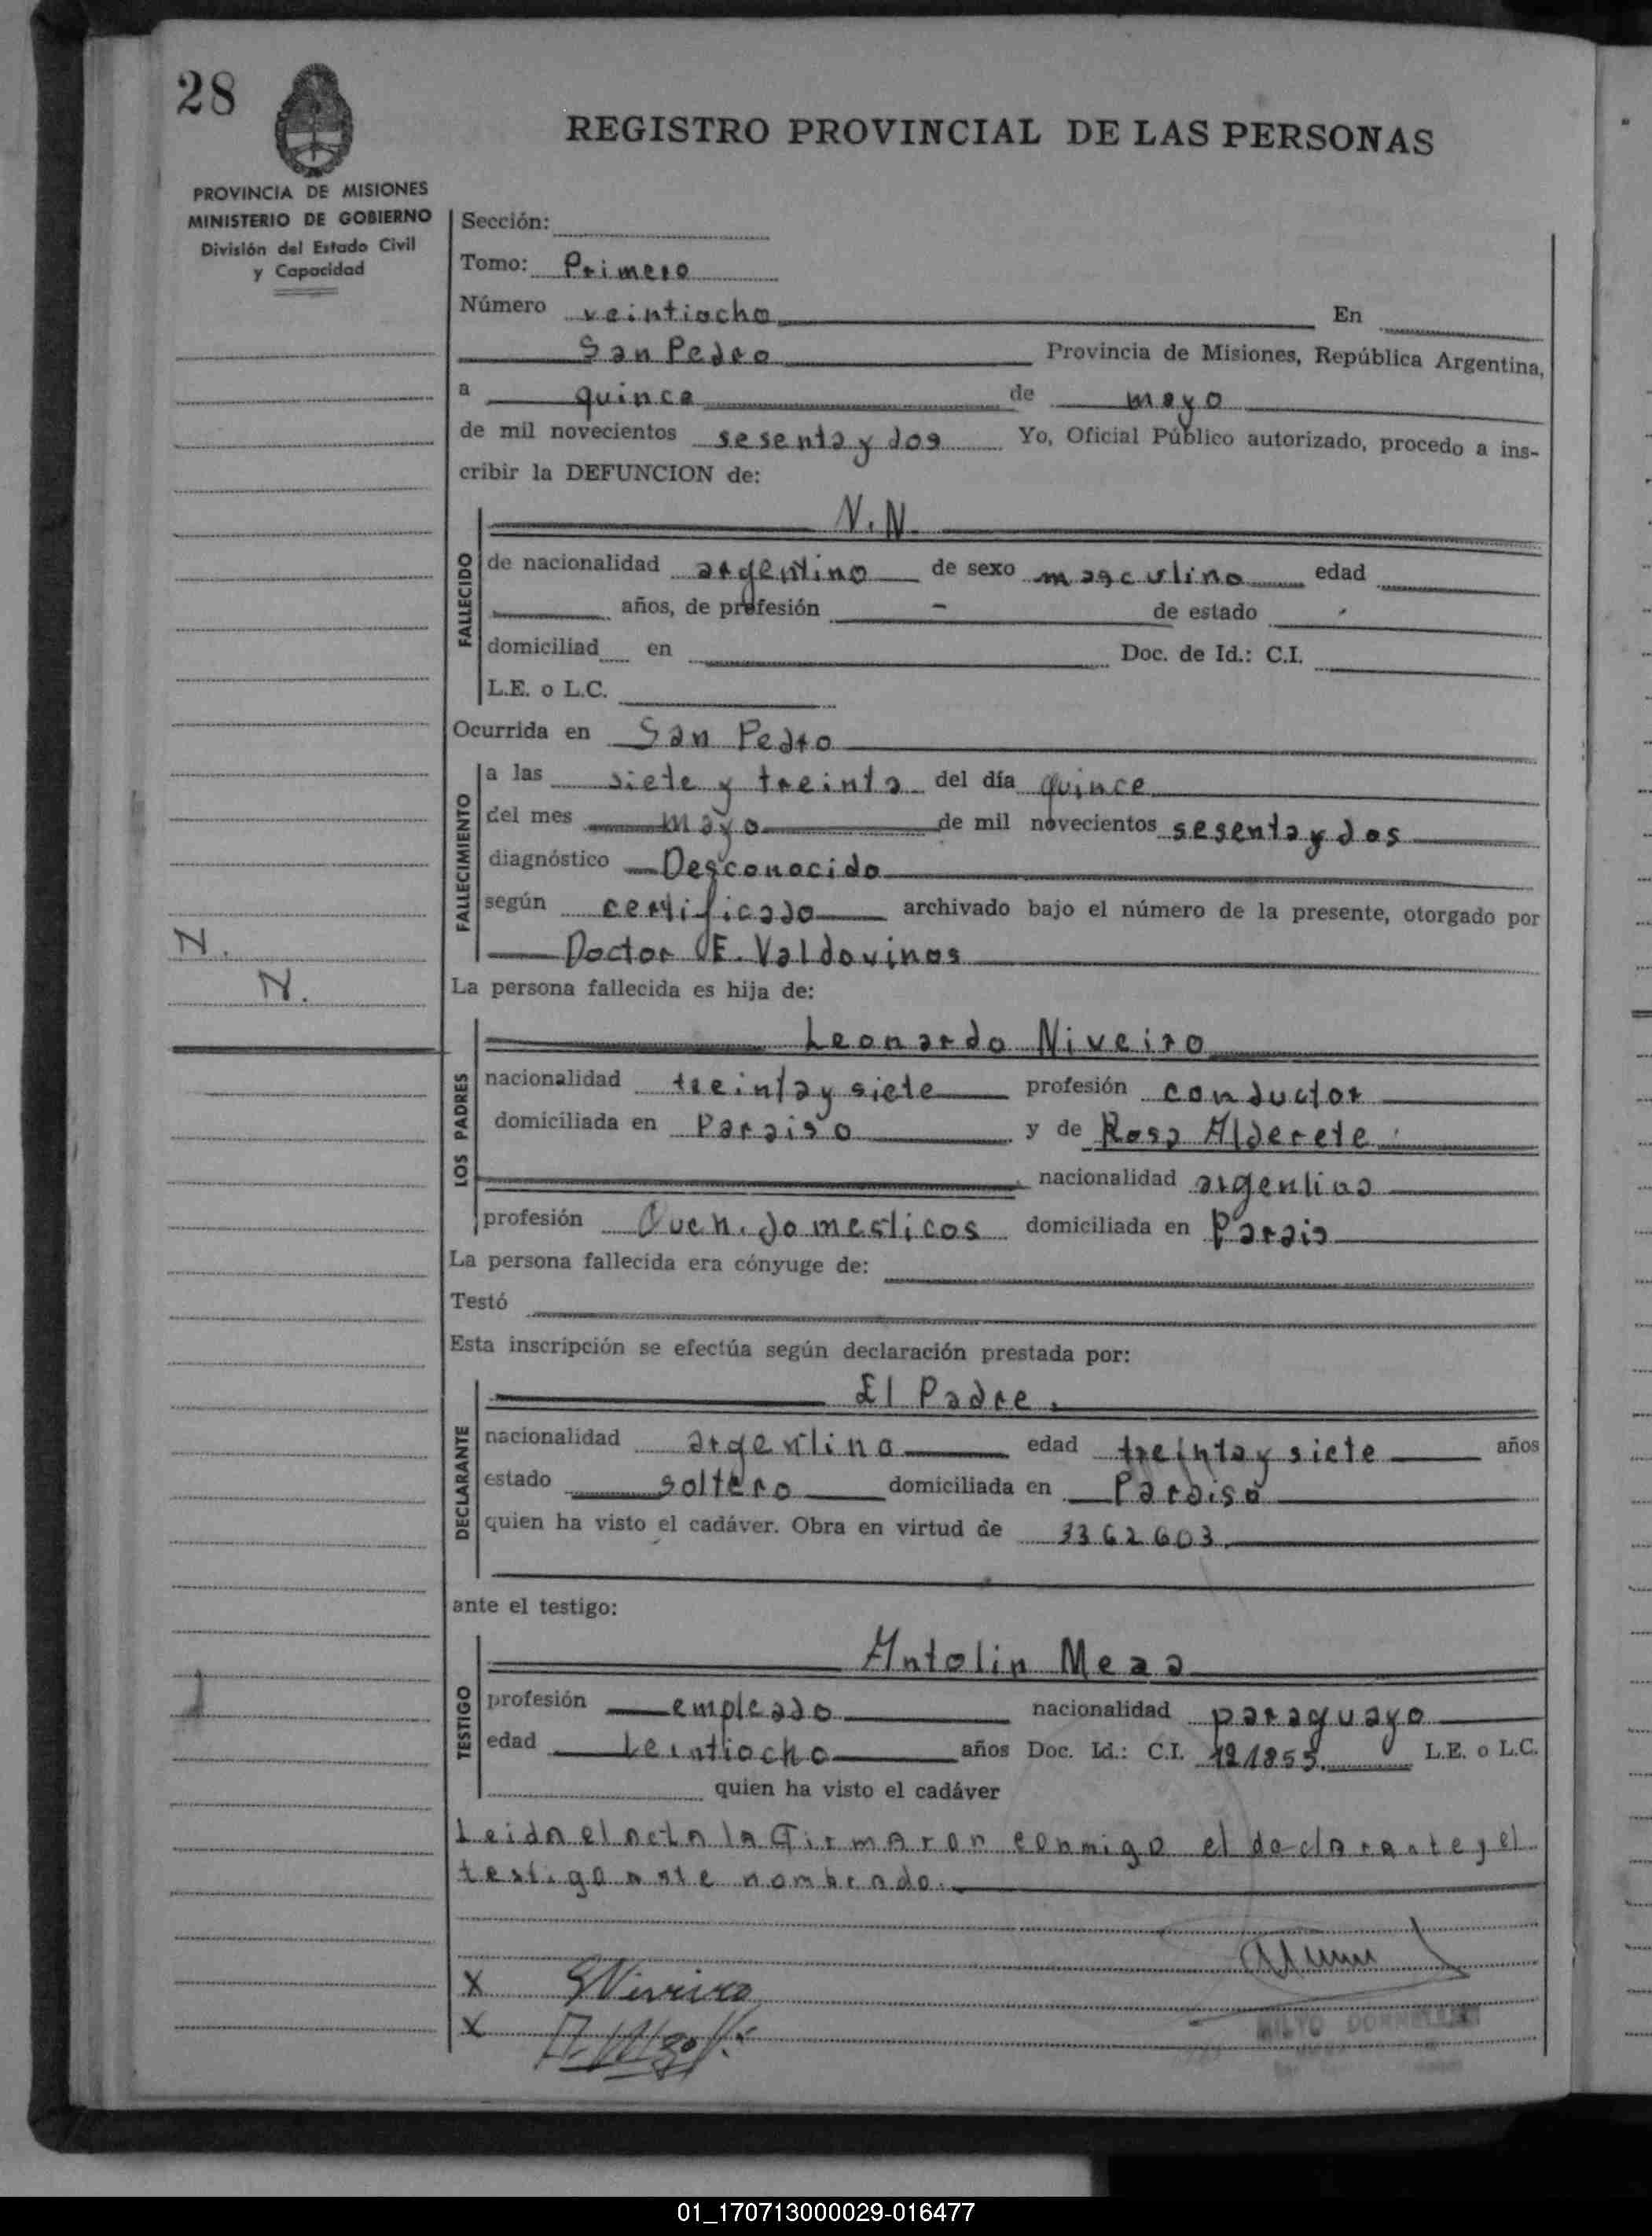 28
REGISTRO PROVINCIAL DE LAS PERSONAS
PROVINCIA DE MISIONES
MINISTERIO DE GOBIERNO
División del Estado Civil
y Capacidad
Sección:
Tomo: Primero
Número veintiocho En
San Pedro Provincia de Misiones, República Argentina,
a quince de mayo
de mil novecientos sesenta y dos Yo, Oficial Público autorizado, procedo a ins-
cribir la DEFUNCION de:
N.N.
FALLECIDO
de nacionalidad argentino de sexo masculino edad
años, de profesión - de estado
domiciliad en Doc. de Id.: C.I.
L.E. o L.C.
Ocurrida en San Pedro
FALLECIMIENTO
a las siete y treinta del día quince
del mes mayo de mil novecientos sesenta y dos
diagnóstico Desconocido
según certificado archivado bajo el número de la presente, otorgado por
Doctor E. Valdovinos
N.
N.
La persona fallecida es hija de:
Leonardo Niveiro
LOS PADRES
nacionalidad treinta y siete profesión conductor
domiciliada en Paraiso y de Rosa Alderete
nacionalidad argentina
profesión domesticos domiciliada en Parais
La persona fallecida era cónyuge de:
Testó
Esta inscripción se efectúa según declaración prestada por:
El Padre.
DECLARANTE
nacionalidad argentino edad treinta y siete años
estado soltero domiciliada en Paraiso
quien ha visto el cadáver. Obra en virtud de 3362603
ante el testigo:
Antolin Meza
TESTIGO
profesión empleado nacionalidad paraguayo
edad veintiocho años Doc. Id.: C.I. 121855 L.E. o L.C.
quien ha visto el cadáver
Leida el acta la Firmaron conmigo el declarante y el
testigo ante nombrado.
X
X
MILTO DORNELLES
01_170713000029-016477